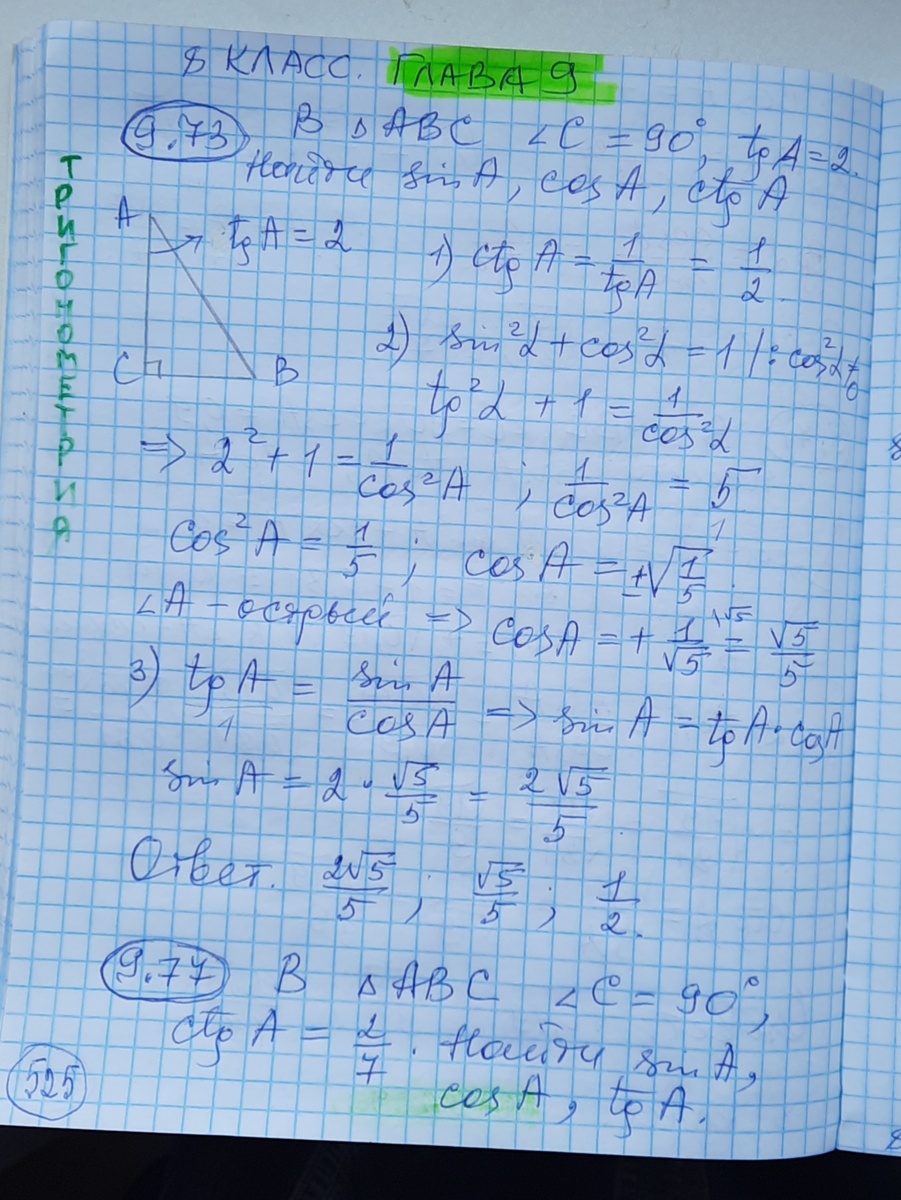 8 КЛАСС. ГЛАВА 9
9.73 В △ABC ∠C = 90°, tgA = 2.
Найти sinA, cosA, ctgA
ТРИГОНОМЕТРИЯ
A
tgA = 2
C B
1) ctgA = 1/tgA = 1/2.
2) sin²α + cos²α = 1 |: cos²α ≠ 0
tg²α + 1 = 1/cos²α
=> 2² + 1 = 1/cos²A ; 1/cos²A = 5/1
cos²A = 1/5 ; cosA = ±√(1/5).
∠A - острый => cosA = + 1/√5 ^{·√5} = √5/5
3) tgA/1 = sinA/cosA => sinA = tgA · cosA
sinA = 2 · √5/5 = 2√5/5.
Ответ. 2√5/5 ; √5/5 ; 1/2.
9.77 В △ABC ∠C = 90°,
ctgA = 2/7. Найти sinA,
525 cosA, tgA.